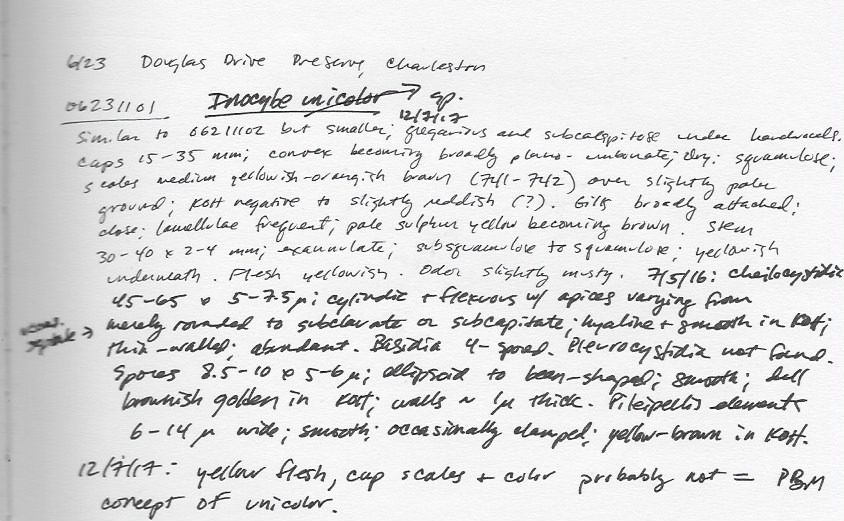 6/23 Douglas Drive Preserve, Charleston
06231101 Inocybe unicolor → sp.
12/7/17
Similar to 06211102 but smaller; gregarious and subcaespitose under hardwoods.
Caps 15-35 mm; convex becoming broadly plano-umbonate; dry; squamulose;
scales medium yellowish-orangish brown (7U1-7U2) over slightly paler
ground; KOH negative to slightly reddish (?). Gills broadly attached;
close; lamellulae frequent; pale sulphur yellow becoming brown. Stem
30-40 x 2-4 mm; exannulate; subsquamulose to squamulose; yellowish
underneath. Flesh yellowish. Odor slightly musty. 7/5/16: cheilocystidia
45-65 x 5-7.5 µ; cylindric + flexuous w/ apices varying from
occas. septate → merely rounded to subclavate or subcapitate; hyaline + smooth in KOH;
thin-walled; abundant. Basidia 4-spored. Pleurocystidia not found.
Spores 8.5-10 x 5-6 µ; ellipsoid to bean-shaped; smooth; dull
brownish golden in KOH; walls ~ 1µ thick. Pileipellis elements
6-14 µ wide; smooth; occasionally clamped; yellow-brown in KOH.
12/7/17: yellow flesh, cap scales + color probably not = PBM
concept of unicolor.